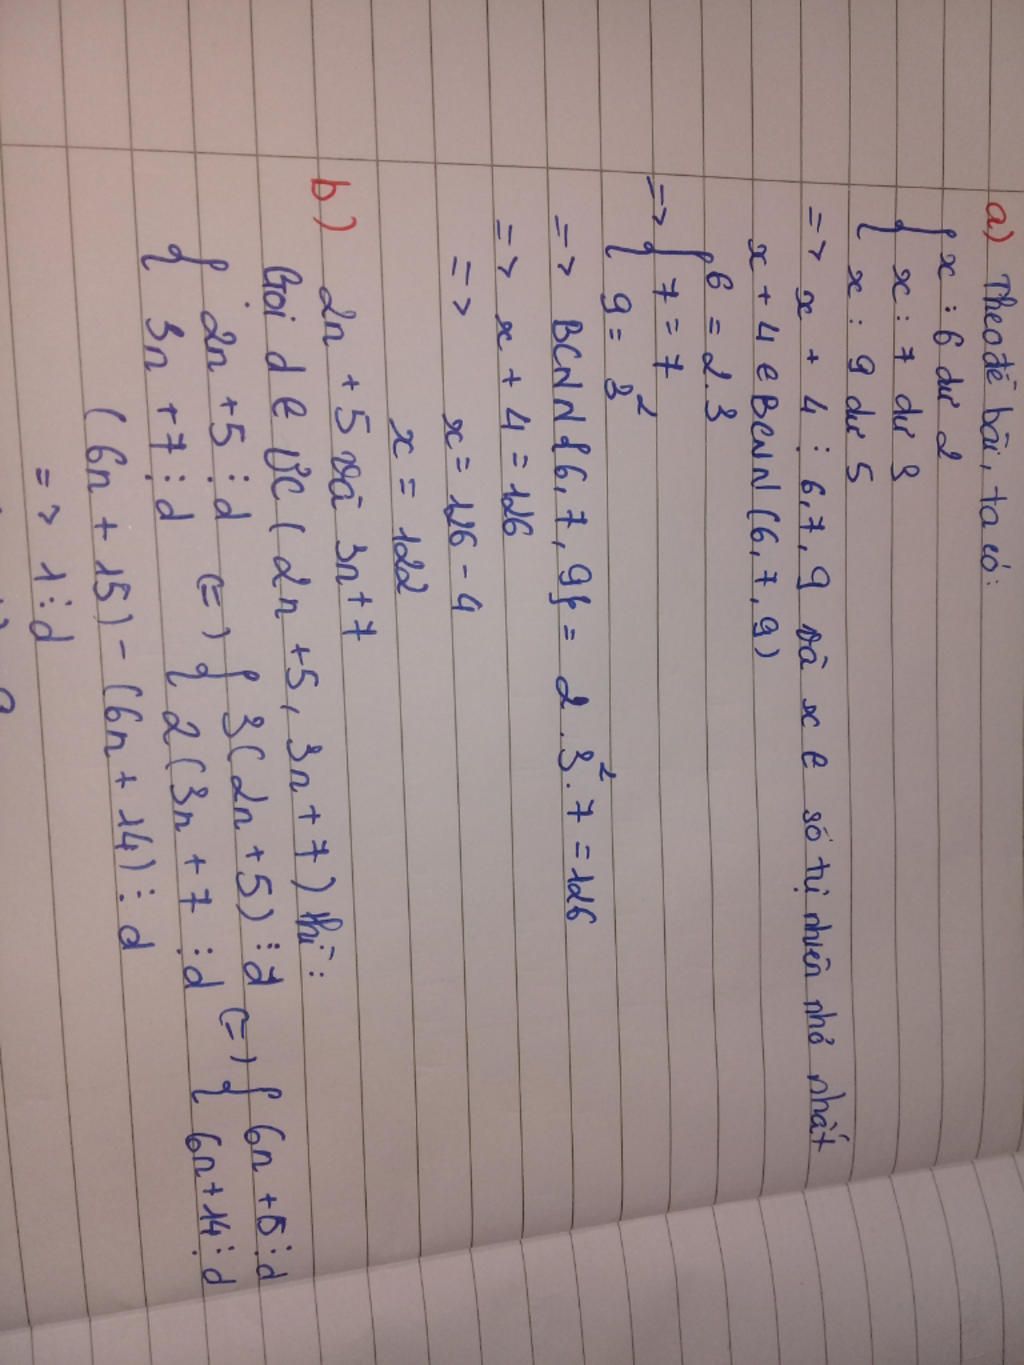 a) Theo đề bài, ta có:
{ x : 6 dư 2
x : 7 dư 3
x : 9 dư 5
=> x + 4 ⋮ 6, 7, 9 và x ∈ số tự nhiên nhỏ nhất
x + 4 ∈ BCNN (6, 7, 9)
=> { 6 = 2.3
7 = 7
9 = 3²
=> BCNN {6, 7, 9} = 2 . 3² . 7 = 126
=> x + 4 = 126
=> x = 126 - 4
x = 122
b) 2n + 5 và 3n + 7
Gọi d ∈ ƯC ( 2n + 5, 3n + 7 ) thì :
{ 2n + 5 ⋮ d (=) { 3(2n + 5) ⋮ d (=) { 6n + 5 ⋮ d
3n + 7 ⋮ d 2(3n + 7 ⋮ d 6n + 14 ⋮ d
(6n + 15) - (6n + 14) ⋮ d
=> 1 ⋮ d